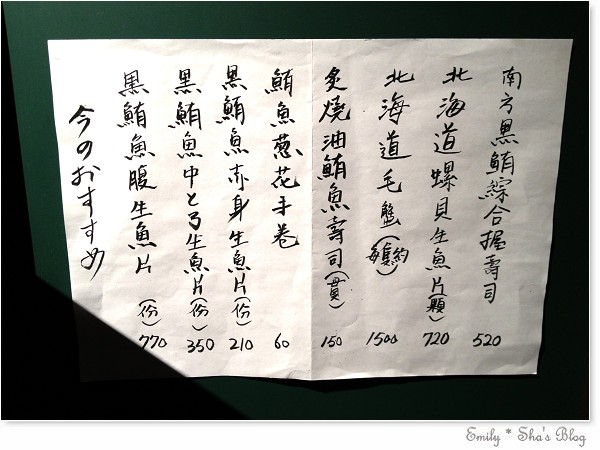 南方黑鮪綜合握壽司 520
北海道螺貝生魚片(顆) 720
北海道毛蟹(每隻約) 1500
炙燒油鮪魚壽司(貫) 150
鮪魚葱花手卷 60
黑鮪魚赤身生魚片(份) 210
黑鮪魚中とろ生魚片(份) 350
黑鮪魚腹生魚片(份) 770
今のおすすめ
Emily * Sha's Blog